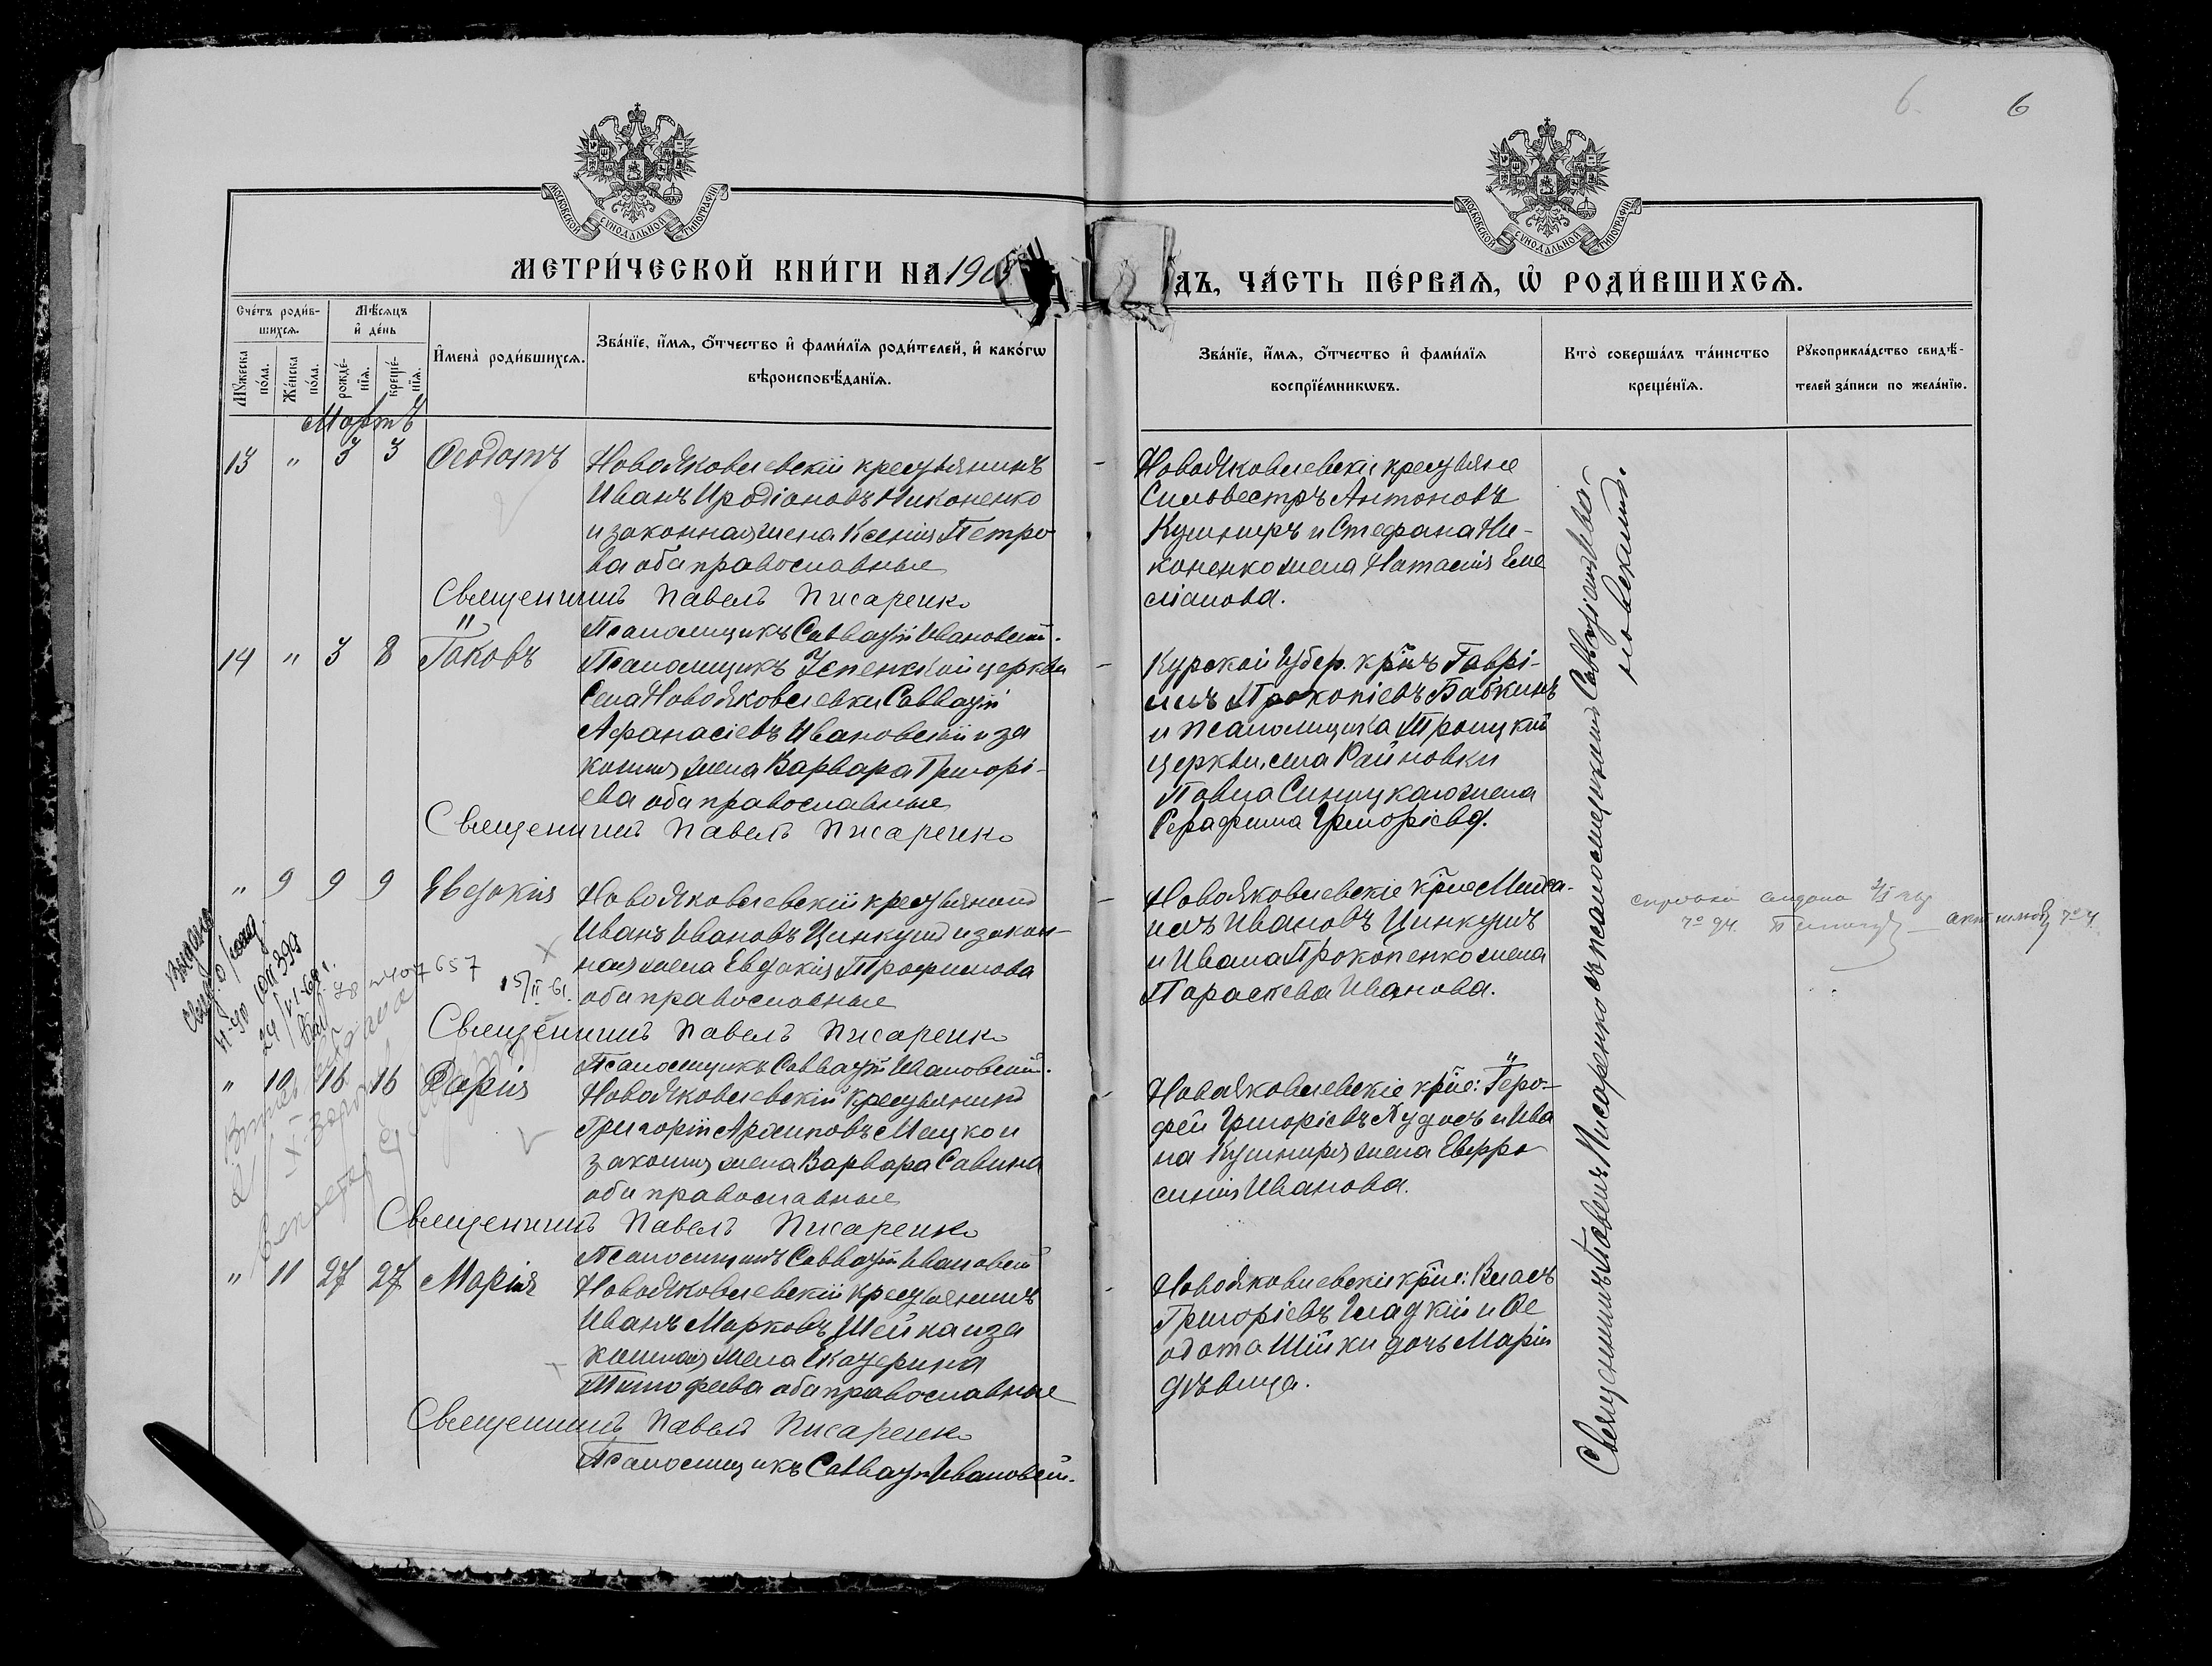 6
6
МОСКОВСКОЙ СѴНОДАЛЬНОЙ ТИПОГРАФІИ
МОСКОВСКОЙ СѴНОДАЛЬНОЙ ТИПОГРАФІИ
МЕТРИ́ЧЕСКОЙ КНИ́ГИ НА 190
ДЪ, ЧА́СТЬ ПЕ́РВАѦ, Ѡ҆ РОДИ́ВШИХСѦ.
Сче́тъ роди́в-
шихсѧ.
Мѣ́сѧцъ
и҆ де́нь
Мꙋ́жеска
по́ла.
Же́нска
по́ла.
рожде́-
нїѧ.
креще́-
нїѧ.
И҆мена̀ роди́вшихсѧ.
Зва́нїе, и҆́мѧ, ѻ҆́тчество и҆ фами́лїѧ роди́телей, и҆ како́гѡ
вѣроисповѣ́данїѧ.
Зва́нїе, и҆́мѧ, ѻ҆́тчество и҆ фами́лїѧ
воспрїе́мникѡвъ.
Кто̀ соверша́лъ та́инство
креще́нїѧ.
Рꙋкоприкла́дство свидѣ́-
телей за́писи по жела́нїю.
Мартъ
13 " 3 3 Ѳеодотъ
Новояковлевскій крестьянинъ
Иванъ Иродіоновъ Никоненко
и законная жена Ксенія Петро
ва оба православные
Священникъ Павелъ Писаренко
Псаломщикъ Савватій Ивановскій.
Новояковлевскіе крестьяне
Сильвестръ Антоновъ
Кушниръ и Стефана Ни-
коненко жена Наталія Еме
ліанова.
14 " 3 8 Іаковъ
Псаломщикъ Успенской церкви
села Новояковлевки Савватій
Афанасіевъ Ивановскій и за
конная жена Варвара Григорі-
ева оба православные
Священникъ Павелъ Писаренко
Курской губер. кр-нъ Гаврі-
илъ Прокопіевъ Бабкинъ
и псаломщика Троицкой
церкви, села Райновки
Павла Синицкаго жена
Серафима Григоріева.
" 9 9 9 Евдокія
Новояковлевскій крестьянинъ
Иванъ Ивановъ Цинкушъ и закон-
ная жена Евдокія Трофимова
оба православные
Священникъ Павелъ Писаренко
Псаломщикъ Савватій Ивановскій.
Новояковлевскіе кр-не Миха-
илъ Ивановъ Цинкушъ
и Ивана Прокопенко жена
Параскева Иванова.
Выдано
657
15/II-61.
" 10 16 16 Дарія
Новояковлевскій крестьянинъ
Григорій Архиповъ Мацко и
законная жена Варвара Савина
оба православные
Священникъ Павелъ Писаренко
Псаломщикъ Савватій Ивановскій
Новояковлевскіе кр-не: Іеро-
фей Григоріевъ Худосъ и Ива
на Кушниря жена Евфро
синія Иванова.
" 11 27 27 Марія
Новояковлевскій крестьянинъ
Иванъ Марковъ Шейка и за
конная жена Екатерина
Тимофеева оба православные
Священникъ Павелъ Писаренко
Псаломщикъ Савватій Ивановскій.
Новояковлевскіе кр-не: Власъ
Григоріевъ Гладкій и Ѳе
одота Шейки дочь Марія
дѣвица.
Священникъ Павелъ Писаренко съ псаломщикомъ Савватіемъ Ива-
новскимъ.